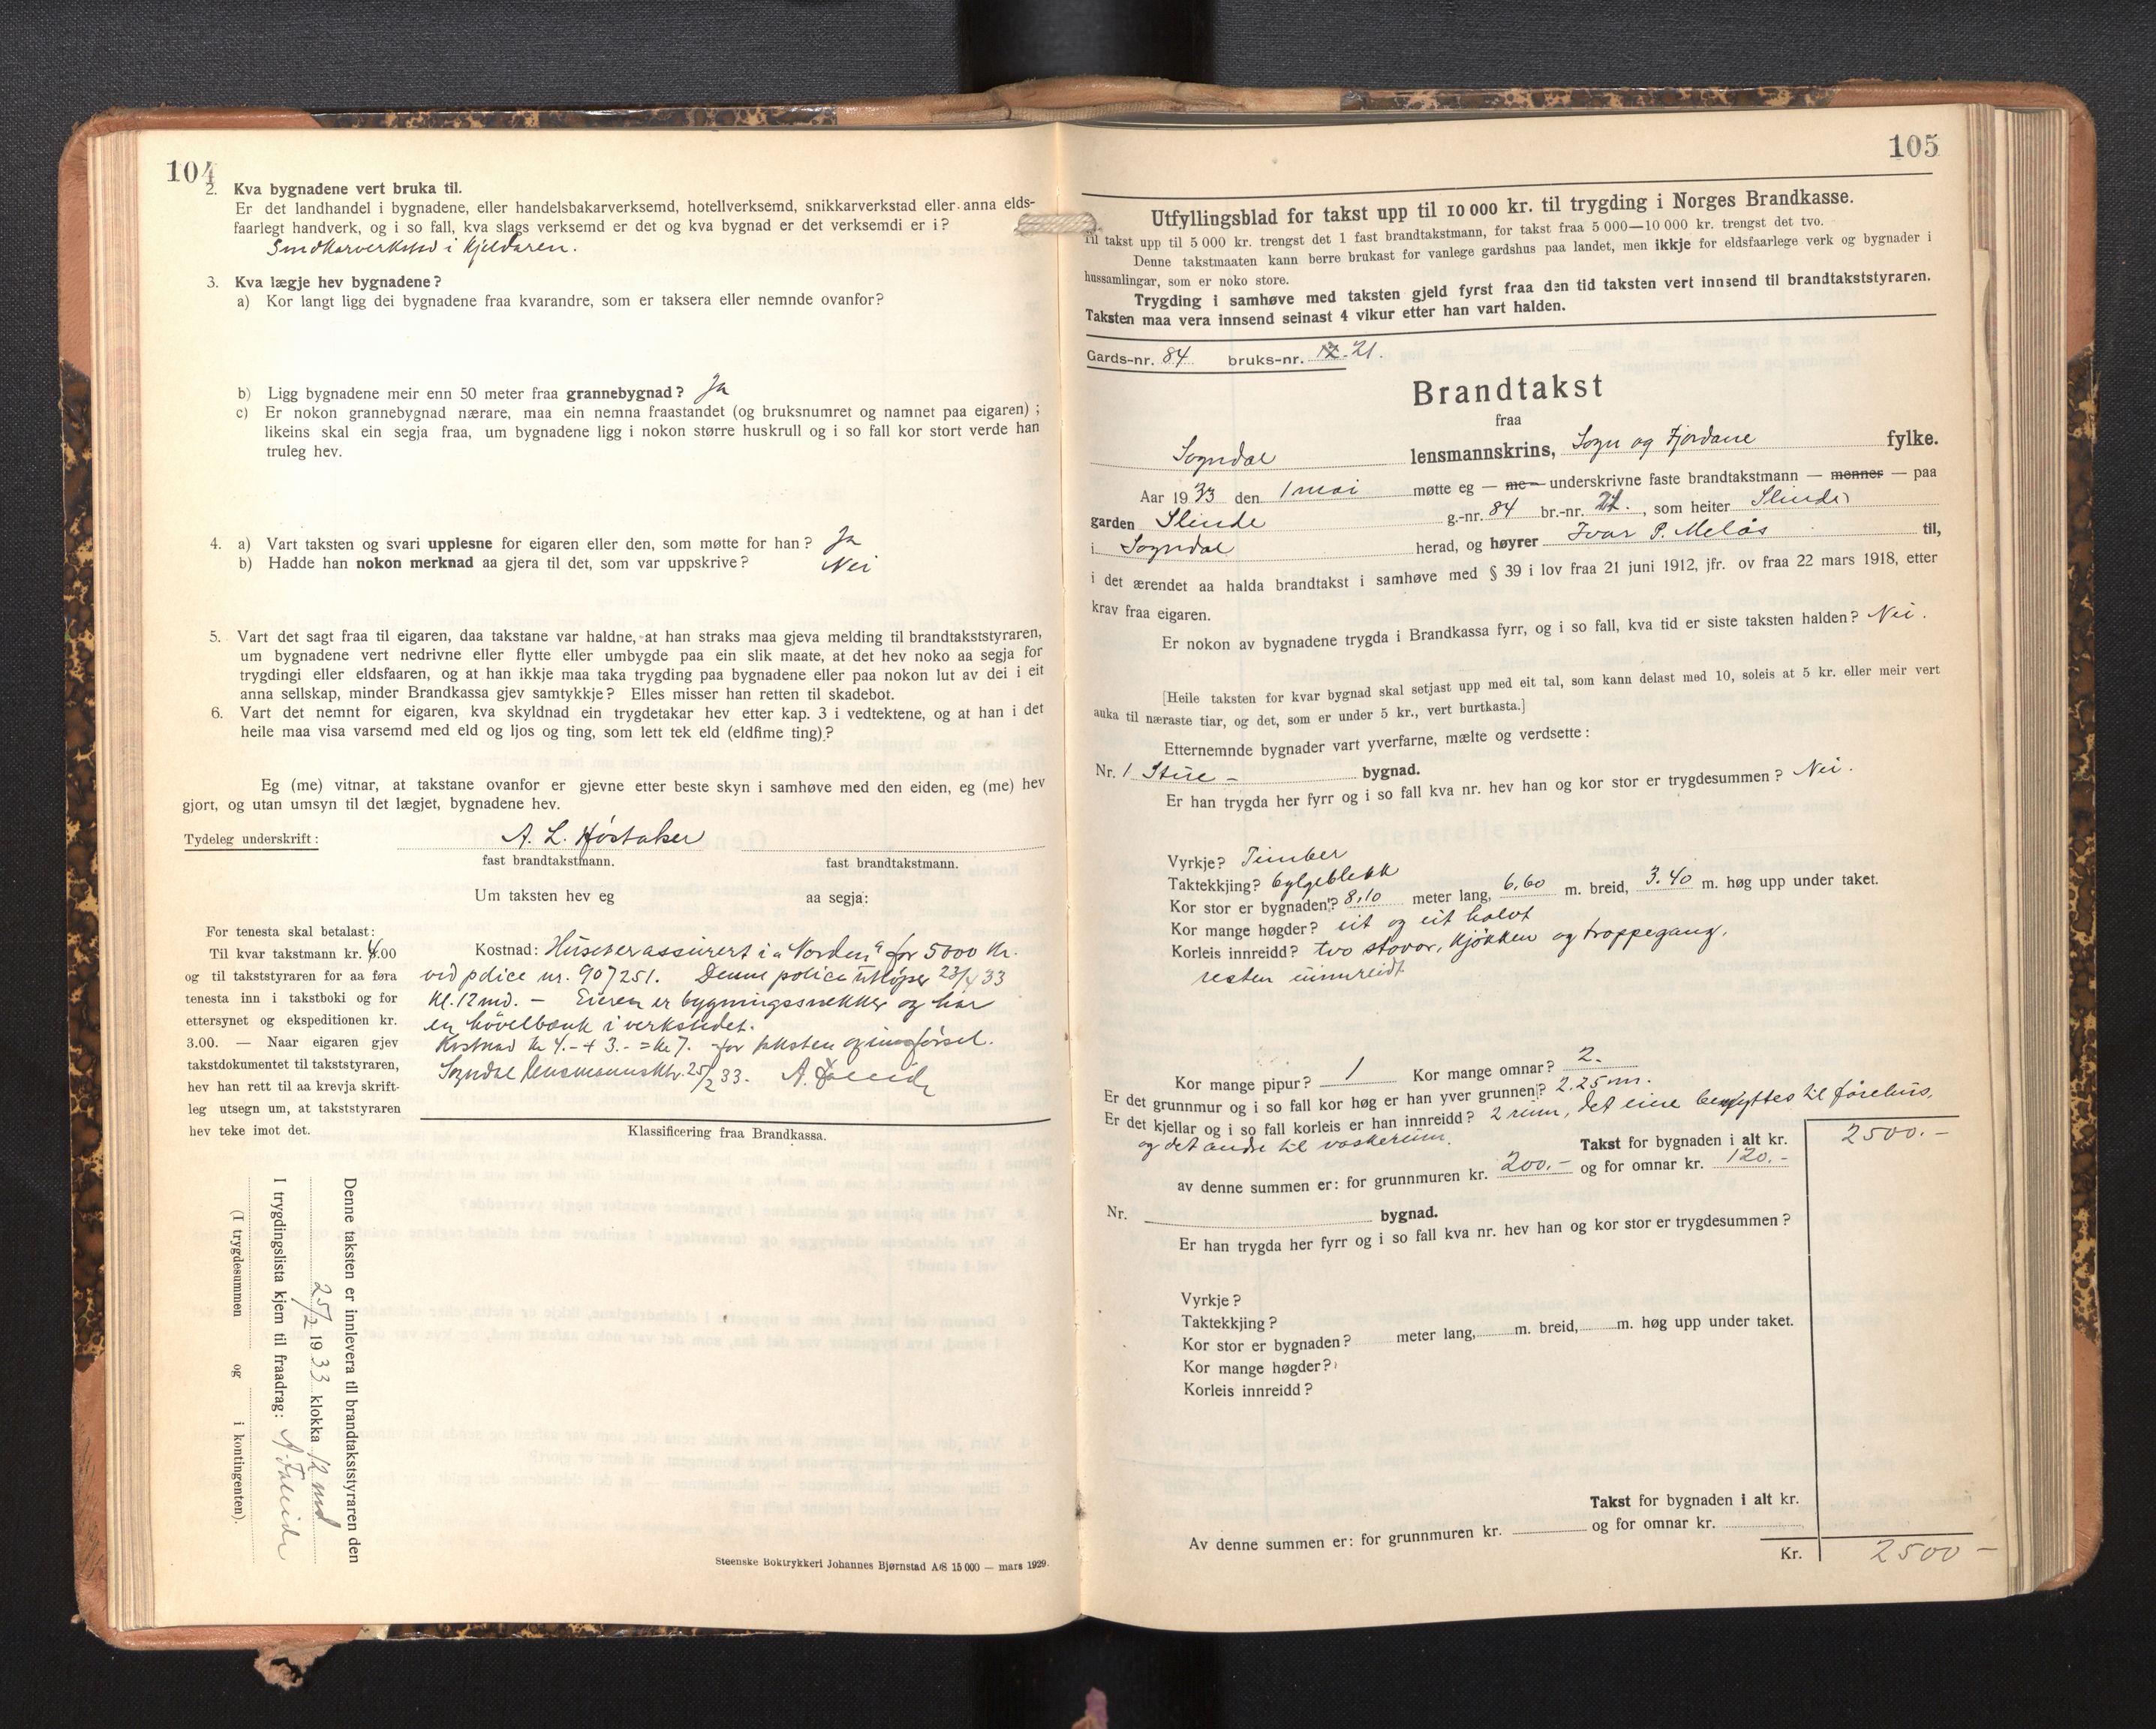 104
2. Kva bygnadene vert bruka til.
Er det landhandel i bygnadene, eller handelsbakarverksemd, hotellverksemd, snikkarverkstad eller anna elds-
faarlegt handverk, og i so fall, kva slags verksemd er det og kva bygnad er det verksemdi er i?
i kjeldaren.
3. Kva lægje hev bygnadene?
a) Kor langt ligg dei bygnadene fraa kvarandre, som er taksera eller nemnde ovanfor?
b) Ligg bygnadene meir enn 50 meter fraa grannebygnad? Ja
c) Er nokon grannebygnad nærare, maa ein nemna fraastandet (og bruksnumret og namnet paa eigaren);
likeins skal ein segja fraa, um bygnadene ligg i nokon større huskrull og i so fall kor stort verde han
truleg hev.
4. a) Vart taksten og svari upplesne for eigaren eller den, som møtte for han? Ja
b) Hadde han nokon merknad aa gjera til det, som var uppskrive? Nei
5. Vart det sagt fraa til eigaren, daa takstane var haldne, at han straks maa gjeva melding til brandtakststyraren,
um bygnadene vert nedrivne eller flytte eller umbygde paa ein slik maate, at det hev noko aa segja for
trygdingi eller eldsfaaren, og at han ikkje maa taka trygding paa bygnadene eller paa nokon lut av dei i eit
anna sellskap, minder Brandkassa gjev samtykkje? Elles misser han retten til skadebot.
6. Vart det nemnt for eigaren, kva skyldnad ein trygdetakar hev etter kap. 3 i vedtektene, og at han i det
heile maa visa varsemd med eld og ljos og ting, som lett tek eld (eldfime ting)?
Eg (me) vitnar, at takstane ovanfor er gjevne etter beste skyn i samhøve med den eiden, eg (me) hev
gjort, og utan umsyn til det lægjet, bygnadene hev.
Tydeleg underskrift: A. L. Høstaker
fast brandtakstmann. fast brandtakstmann.
Um taksten hev eg aa segja:
For tenesta skal betalast:
Til kvar takstmann kr. 4.00
og til takststyraren for aa føra
tenesta inn i takstboki og for
ettersynet og ekspeditionen kr.
3.00. — Naar eigaren gjev
takstdokumentet til takststyraren,
hev han rett til aa krevja skrift-
leg utsegn um, at takststyraren
hev teke imot det.
Kostnad: Huset er assurert i "Norden" for 5000 kr.
ved police nr. 907251. Denne police utløper 23/4 33
kl. 12 md. — Eieren er bygningssnekker og har
en høvelbænk i verkstedet.
Kostnad kr 4.- + 3.- = kr 7. for taksten og innførsel.
Sogndal lensmannsktr. 25/2 33. A. Faleide
Klassificering fraa Brandkassa.
Denne taksten er innlevera til brandtakststyraren den
25/2 1933 klokka 12 md
I trygdingslista kjem til fraadrag: A Faleide
(I trygdesummen og i kontingenten).
Steenske Boktrykkeri Johannes Bjørnstad A/S 15 000 — mars 1929.
105
Utfyllingsblad for takst upp til 10 000 kr. til trygding i Norges Brandkasse.
Til takst upp til 5 000 kr. trengst det 1 fast brandtakstmann, for takst fraa 5 000—10 000 kr. trengst det tvo.
Denne takstmaaten kann berre brukast for vanlege gardshus paa landet, men ikkje for eldsfaarlege verk og bygnader i
hussamlingar, som er noko store.
Trygding i samhøve med taksten gjeld fyrst fraa den tid taksten vert innsend til brandtakststyraren.
Taksten maa vera innsend seinast 4 vikur etter han vart halden.
Gards-nr. 84 bruks-nr. 21.
Brandtakst
fraa
Sogndal lensmannskrins, Sogn og Fjordane fylke.
Aar 1933 den 1 mai møtte eg — me — underskrivne faste brandtakstmann — menner — paa
garden Slinde g.-nr. 84 br.-nr. 21., som heiter Slinde
i Sogndal herad, og høyrer Ivar P. Melås til,
i det ærendet aa halda brandtakst i samhøve med § 39 i lov fraa 21 juni 1912, jfr. ov fraa 22 mars 1918, etter
krav fraa eigaren.
Er nokon av bygnadene trygda i Brandkassa fyrr, og i so fall, kva tid er siste taksten halden? Nei.
[Heile taksten for kvar bygnad skal setjast upp med eit tal, som kann delast med 10, soleis at 5 kr. eller meir vert
auka til næraste tiar, og det, som er under 5 kr., vert burtkasta.]
Etternemnde bygnader vart yverfarne, mælte og verdsette:
Nr. 1 Stue - bygnad.
Er han trygda her fyrr og i so fall kva nr. hev han og kor stor er trygdesummen? Nei.
Vyrkje? Timber
Taktekkjing? bylgeblekk
Kor stor er bygnaden? 8,10 meter lang, 6,60 m. breid, 3.40 m. høg upp under taket.
Kor mange høgder? eit og eit halvt
Korleis innreidd? tvo stovor, kjøkken og troppegang,
resten uinnreidt
Kor mange pipur? 1 Kor mange omnar? 2.
Er det grunnmur og i so fall kor høg er han yver grunnen? 2.25 m.
Er det kjellar og i so fall korleis er han innreidd? 2 rum, det eine benyttes til fórehus,
og det andre til vaskerum. Takst for bygnaden i alt kr. 2500.-
av denne summen er: for grunnmuren kr. 200.- og for omnar kr. 120.-
Nr. bygnad.
Er han trygda her fyrr og i so fall kva nr. hev han og kor stor er trygdesummen?
Vyrkje?
Taktekkjing?
Kor stor er bygnaden? meter lang, m. breid, m. høg upp under taket.
Kor mange høgder?
Korleis innreidd?
Takst for bygnaden i alt kr.
Av denne summen er: for grunnmuren kr. og for omnar kr.
Kr. 2500-